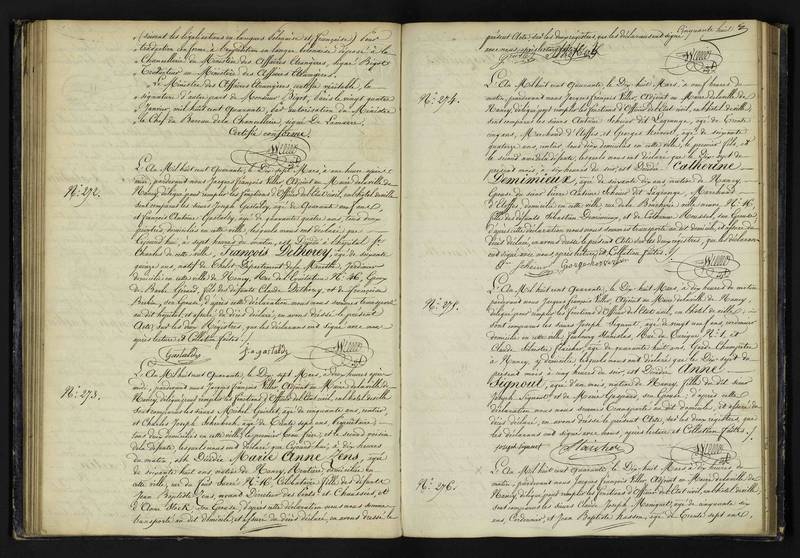 (suivent les légalisations en langues Polonaise et française) Pour
traduction conforme à l'expédition en langue Polonaise déposée à la
Chancellerie du Ministère des Affaires Etrangères, signé Bigot
Traducteur au Ministère des Affaires Etrangères.
Le Ministre des Affaires Etrangères certifie véritable, la
signature d'autre part de Monsieur Bigot, Paris le vingt quatre
Janvier mil huit cent quarante, par autorisation du Ministre
le Chef du Bureau de la Chancellerie, signé De Lamarre.
Certifié conforme.
N°. 272.
L'An Mil huit cent Quarante, le Dix sept Mars, à une heure après
midi, pardevant nous Jacques François Adjoint au Maire de la ville de
Nancy, délégué pour remplir les fonctions d'Officier de l'Etat civil, en l'hôtel de ville
sont comparus les sieurs Joseph Gastaldy, âgé de Quarante ans,
et François Antoine Gastaldy, âgé de quarante quatre ans, tous deux
domiciliés en cette ville, lesquels nous ont déclaré que
Cejourd'hui, à sept heures du matin, est Décédé à l'hôpital St
Charles de cette ville, François Dethorey, âgé de soixante
quinze ans, natif de Département de la Meurthe, Jardinier
domicilié en cette ville de Nancy, Rue de l'Equitation N°. 46,
fils des défunts Claude Dethorey, et de Françoise
son Epouse, d'après cette déclaration nous nous sommes transporté
au dit hôpital, et assuré du décès déclaré, en avons dressé le présent
Acte, sur les deux Registres, que les déclarants ont signé avec nous
après lecture et Collation faites.
Gastaldy f. a. gastaldy
N°. 273.
L'An Mil huit cent Quarante, le Dix sept Mars, à deux heures après
midi, pardevant nous Jacques François Adjoint au Maire de la ville de
Nancy, délégué pour remplir les fonctions d'Officier de l'Etat civil, en l'hôtel de ville
sont comparus les sieurs Michel âgé de cinquante ans, rentier,
et Charles Joseph âgé de Trente sept ans,
tous deux domiciliés en cette ville, le premier Cousin, et le second
de la défunte, lesquels nous ont déclaré que Cejourd'hui, à dix heures
du matin, est Décédée Marie Anne Jens, âgée
de soixante huit ans, native de Nancy, Rentière, domiciliée en
cette ville, rue du N°. 16, Célibataire, fille des défunts
Jean Baptiste Jens, vivant Directeur des Ponts et Chaussées, et
d'Anne son Epouse, d'après cette déclaration nous nous sommes
transporté au dit domicile, et assuré du décès déclaré, en avons dressé le
Cinquante huit
présent Acte sur les deux registres, que les déclarants ont signé
avec nous, après lecture
N°. 274.
L'An Mil huit cent Quarante, le Dix huit Mars, à neuf heures du
matin, pardevant nous Jacques François Adjoint au Maire de la ville de
Nancy, délégué pour remplir les fonctions d'Officier de l'Etat civil, en l'hôtel de ville
sont comparus les sieurs Antoine Lagrange, âgé de Trente
cinq ans, Marchand d'étoffes, et Georges âgé de soixante
quatorze ans, rentier, tous deux domiciliés en cette ville, le premier fils, et
le second ami de la défunte, lesquels nous ont déclaré que le Dix sept du
présent mois, à dix heures du soir, est Décédée Catherine
Demimieux, âgée de soixante dix ans, native de Nancy,
Epouse du sieur Pierre Antoine dit Lagrange, Marchand
d'Etoffes, domiciliés en cette ville, rue de la Boucherie ville vieille, N°. 16,
fille des défunts Sébastien Demimieux, et de Catherine son Epouse,
d'après cette déclaration nous nous sommes transporté au dit domicile, et assuré du
décès déclaré, en avons dressé le présent Acte sur les deux registres, que les déclarants
ont signé avec nous, après lecture et Collation faites.
N°. 275.
L'An Mil huit cent Quarante, le Dix huit Mars, à dix heures du matin
pardevant nous Jacques François Adjoint au Maire de la ville de Nancy
délégué pour remplir les fonctions d'Officier de l'Etat civil, en l'hôtel de ville,
sont comparus les sieurs Joseph Signout, âgé de vingt neuf ans, cordonnier
domicilié en cette ville, faubourg Stanislas, Rue de N°. 1, et
Claude Sébastien âgé de quarante huit ans, Garde Champêtre
à Nancy, y domicilié, lesquels nous ont déclaré que le Dix sept du
présent mois, à cinq heures du soir, est Décédée Anne
Signout, âgée d'un mois, native de Nancy, fille du dit sieur
Joseph Signout, et de Marie Gaspard, son Epouse, d'après cette
déclaration nous nous sommes transporté au dit domicile, et assuré du
décès déclaré, en avons dressé le présent Acte, sur les deux registres, que
les déclarants ont signé avec nous, après lecture et Collation faites.
joseph signout
N°. 276.
L'An Mil huit cent Quarante, le Dix huit Mars, à dix heures du
matin, pardevant nous Jacques François Adjoint au Maire de la ville de
Nancy, délégué pour remplir les fonctions d'Officier de l'Etat civil, en l'hôtel de ville,
sont comparus les sieurs Claude Joseph âgé de cinquante six
ans, Cordonnier, et Jean Baptiste âgé de Trente sept ans,